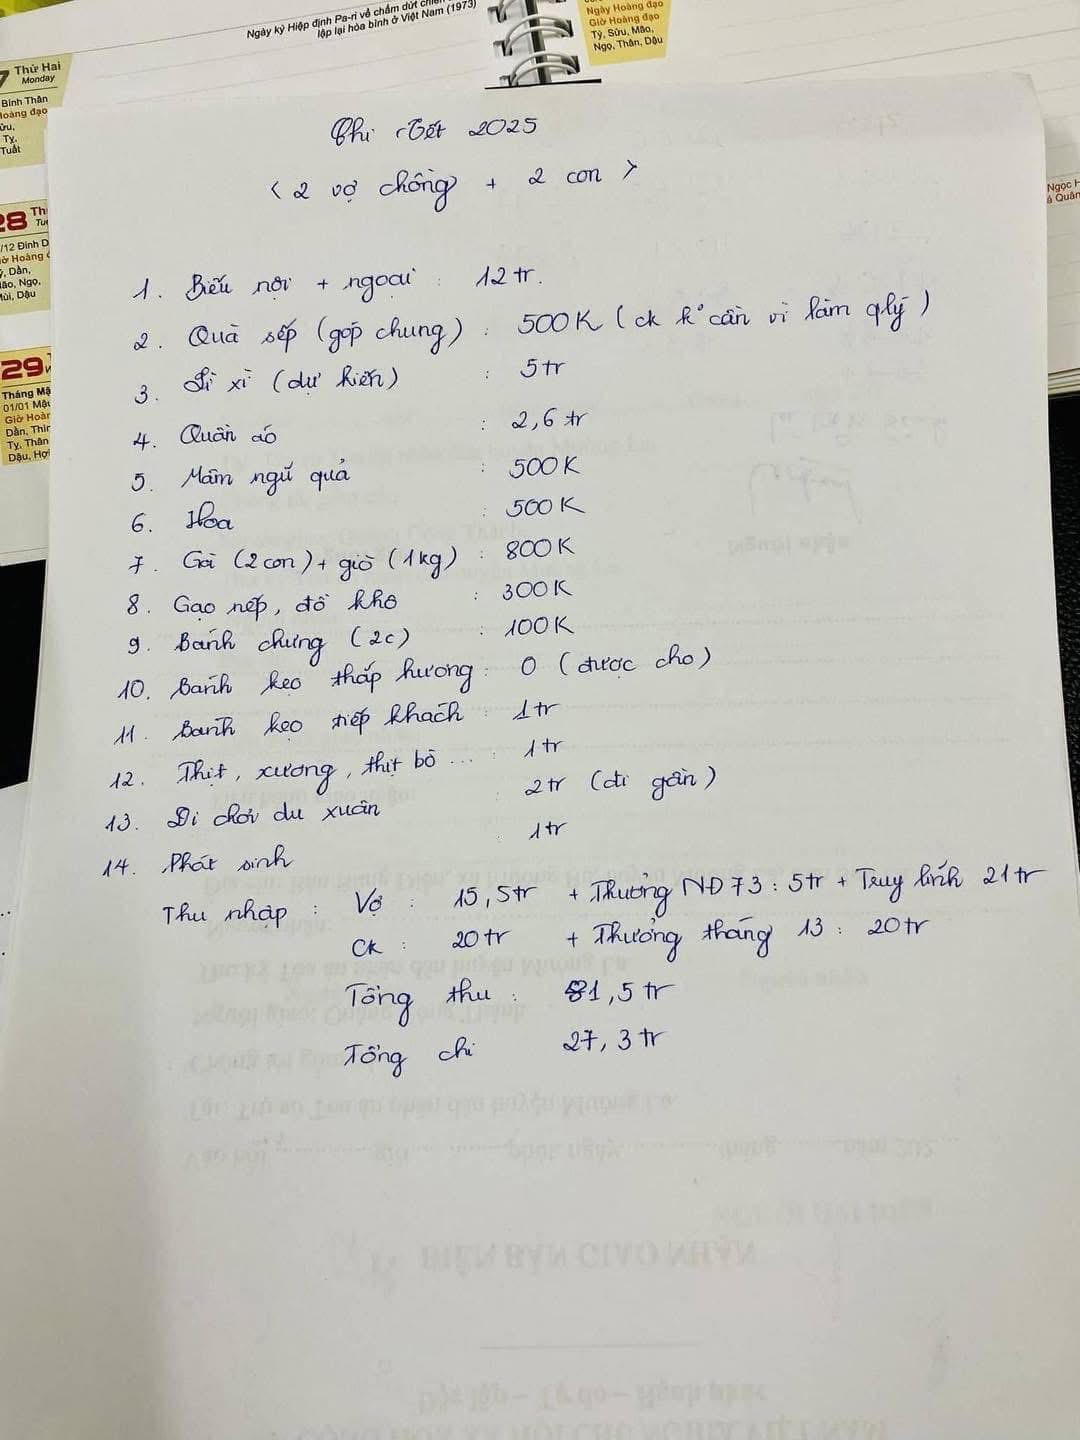 Ngày ký Hiệp định Pa-ri về chấm dứt chiến
lập lại hòa bình ở Việt Nam (1973)
Ngày Hoàng đạo
Giờ Hoàng đạo
Tý, Sửu, Mão,
Ngọ, Thân, Dậu
7 Thứ Hai
Monday
Bính Thân
Hoàng đạo
Tỵ,
Tuất
28
/12 Đinh D
Giờ Hoàng
Dần,
Mão, Ngọ,
Mùi, Dậu
29
Tháng Mậ
01/01 Mậ
Giờ Hoàn
Dần, Thìn
Tỵ, Thân
Dậu, Hợi
Ngọc H
à Quân
Chi Tết 2025
< 2 vợ chồng + 2 con >
1. Biếu nội + ngoại : 12 tr.
2. Quà sếp (góp chung) : 500K (ck k° cần vì làm qlý)
3. Lì xì (dự kiến) : 5 tr
4. Quần áo : 2,6 tr
5. Mâm ngũ quả : 500K
6. Hoa : 500K
7. Gà (2 con) + giò (1kg) : 800K
8. Gạo nếp, đồ khô : 300K
9. Bánh chưng (2c) : 100K
10. Bánh kẹo thắp hương : 0 (được cho)
11. Bánh kẹo tiếp khách : 1 tr
12. Thịt, xương, thịt bò ... : 1 tr
13. Đi chơi du xuân : 2 tr (đi gần)
14. Phát sinh : 1 tr
Thu nhập : Vợ : 15,5 tr + Thưởng NĐ 73 : 5 tr + Truy lĩnh 21 tr
Ck : 20 tr + Thưởng tháng 13 : 20 tr
Tổng thu : 81,5 tr
Tổng chi 27,3 tr
BIÊN BẢN GIAO NHẬN
Độc lập – Tự do – Hạnh phúc